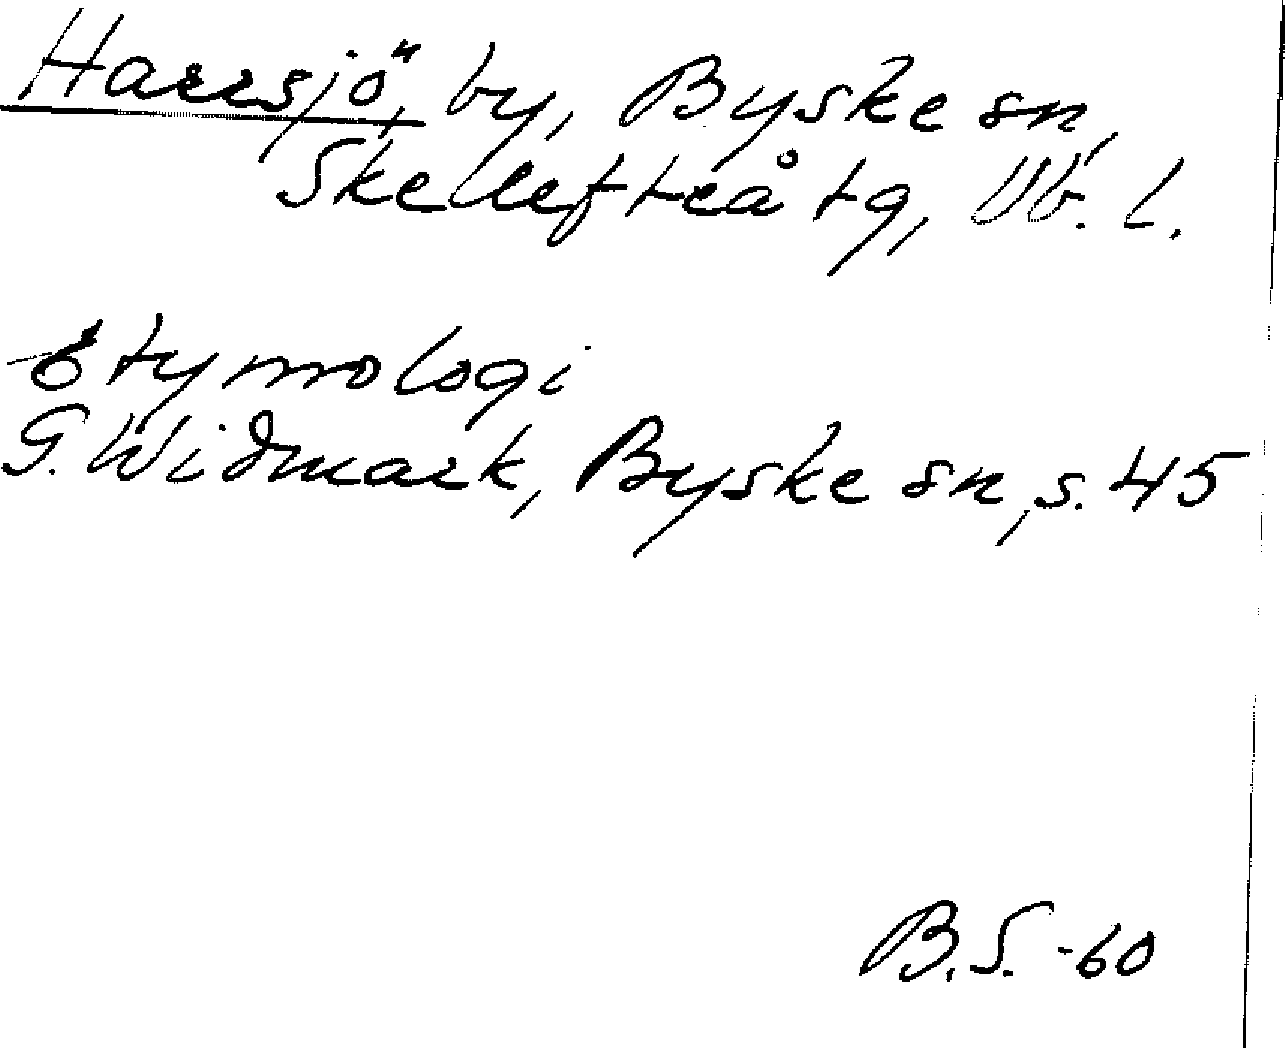 Harrsjö, by, Byske sn,
Skellefteå tg, Vb. l.
Etymologi
G. Widmark, Byske sn, s. 45
B.S. -60